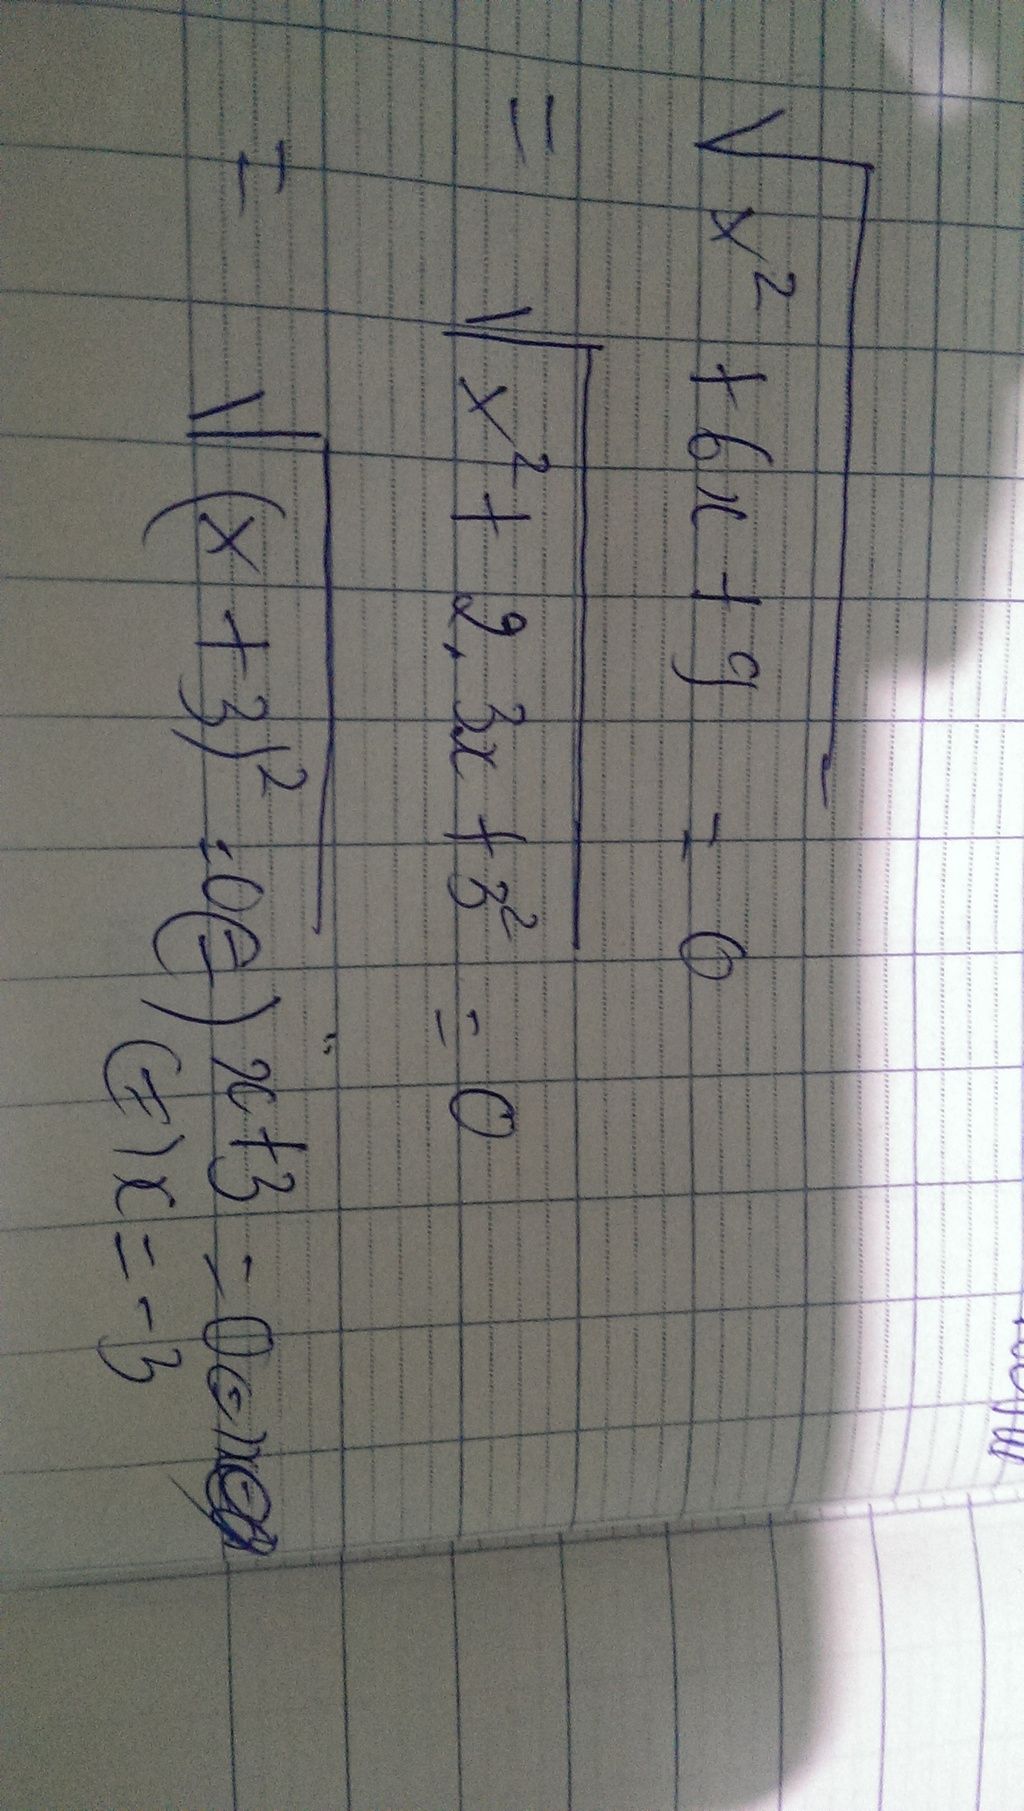 √x² + 6x + 9 = 0
= √x² + 2.3x + 3² = 0
= √(x + 3)² = 0 (=) x + 3 = 0
(=) x = -3